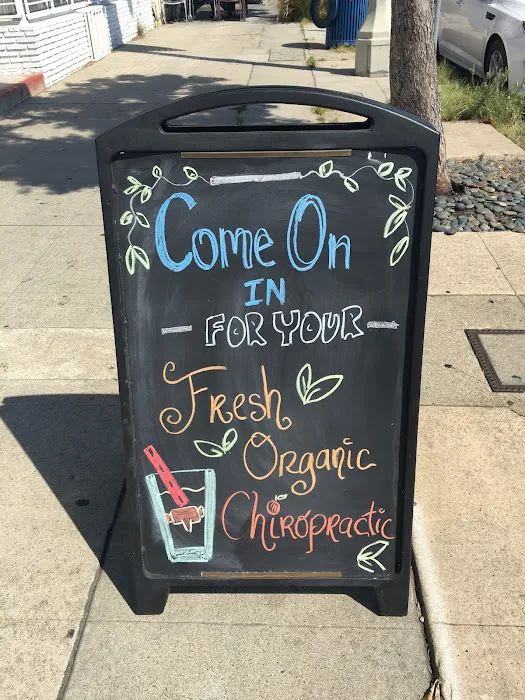 Come On
IN
FOR YOUR
Fresh
Organic
Chiropractic